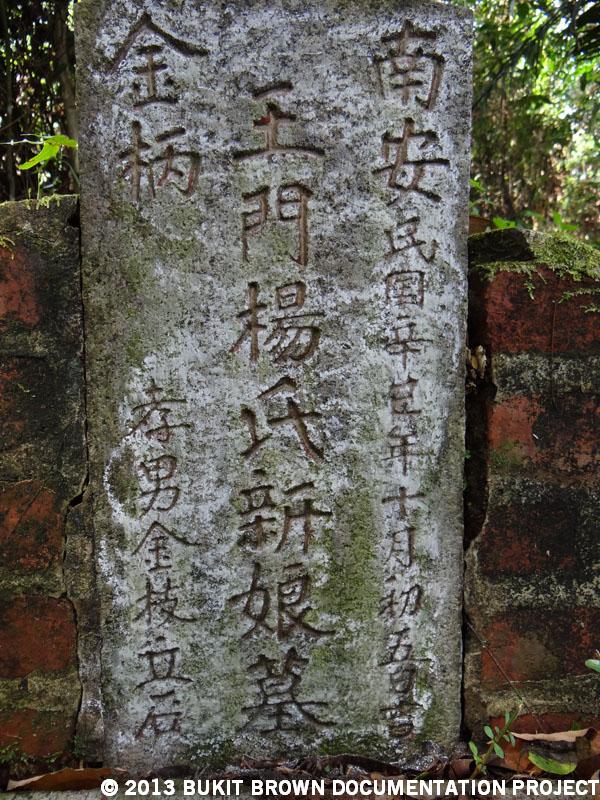 南安
民国辛年十月初五日吉
王門楊氏新娘墓
金柄
孝男金枝立石
© 2013 BUKIT BROWN DOCUMENTATION PROJECT